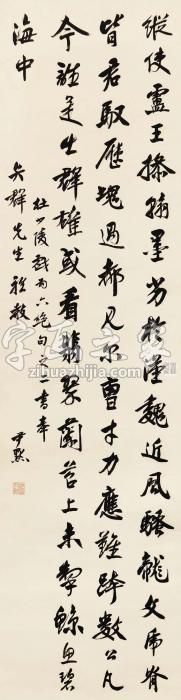 縱使盧王操翰墨劣於漢魏近風騷龍文虎脊
皆君馭歷塊過都見尔曹才力應難跨數公凡
今誰是出群雄或看翡翠蘭苕上未掣鯨魚碧
海中
杜少陵戲為六絕句之二書奉
群先生雅教
尹默
字画之家
zihuazhijia.com